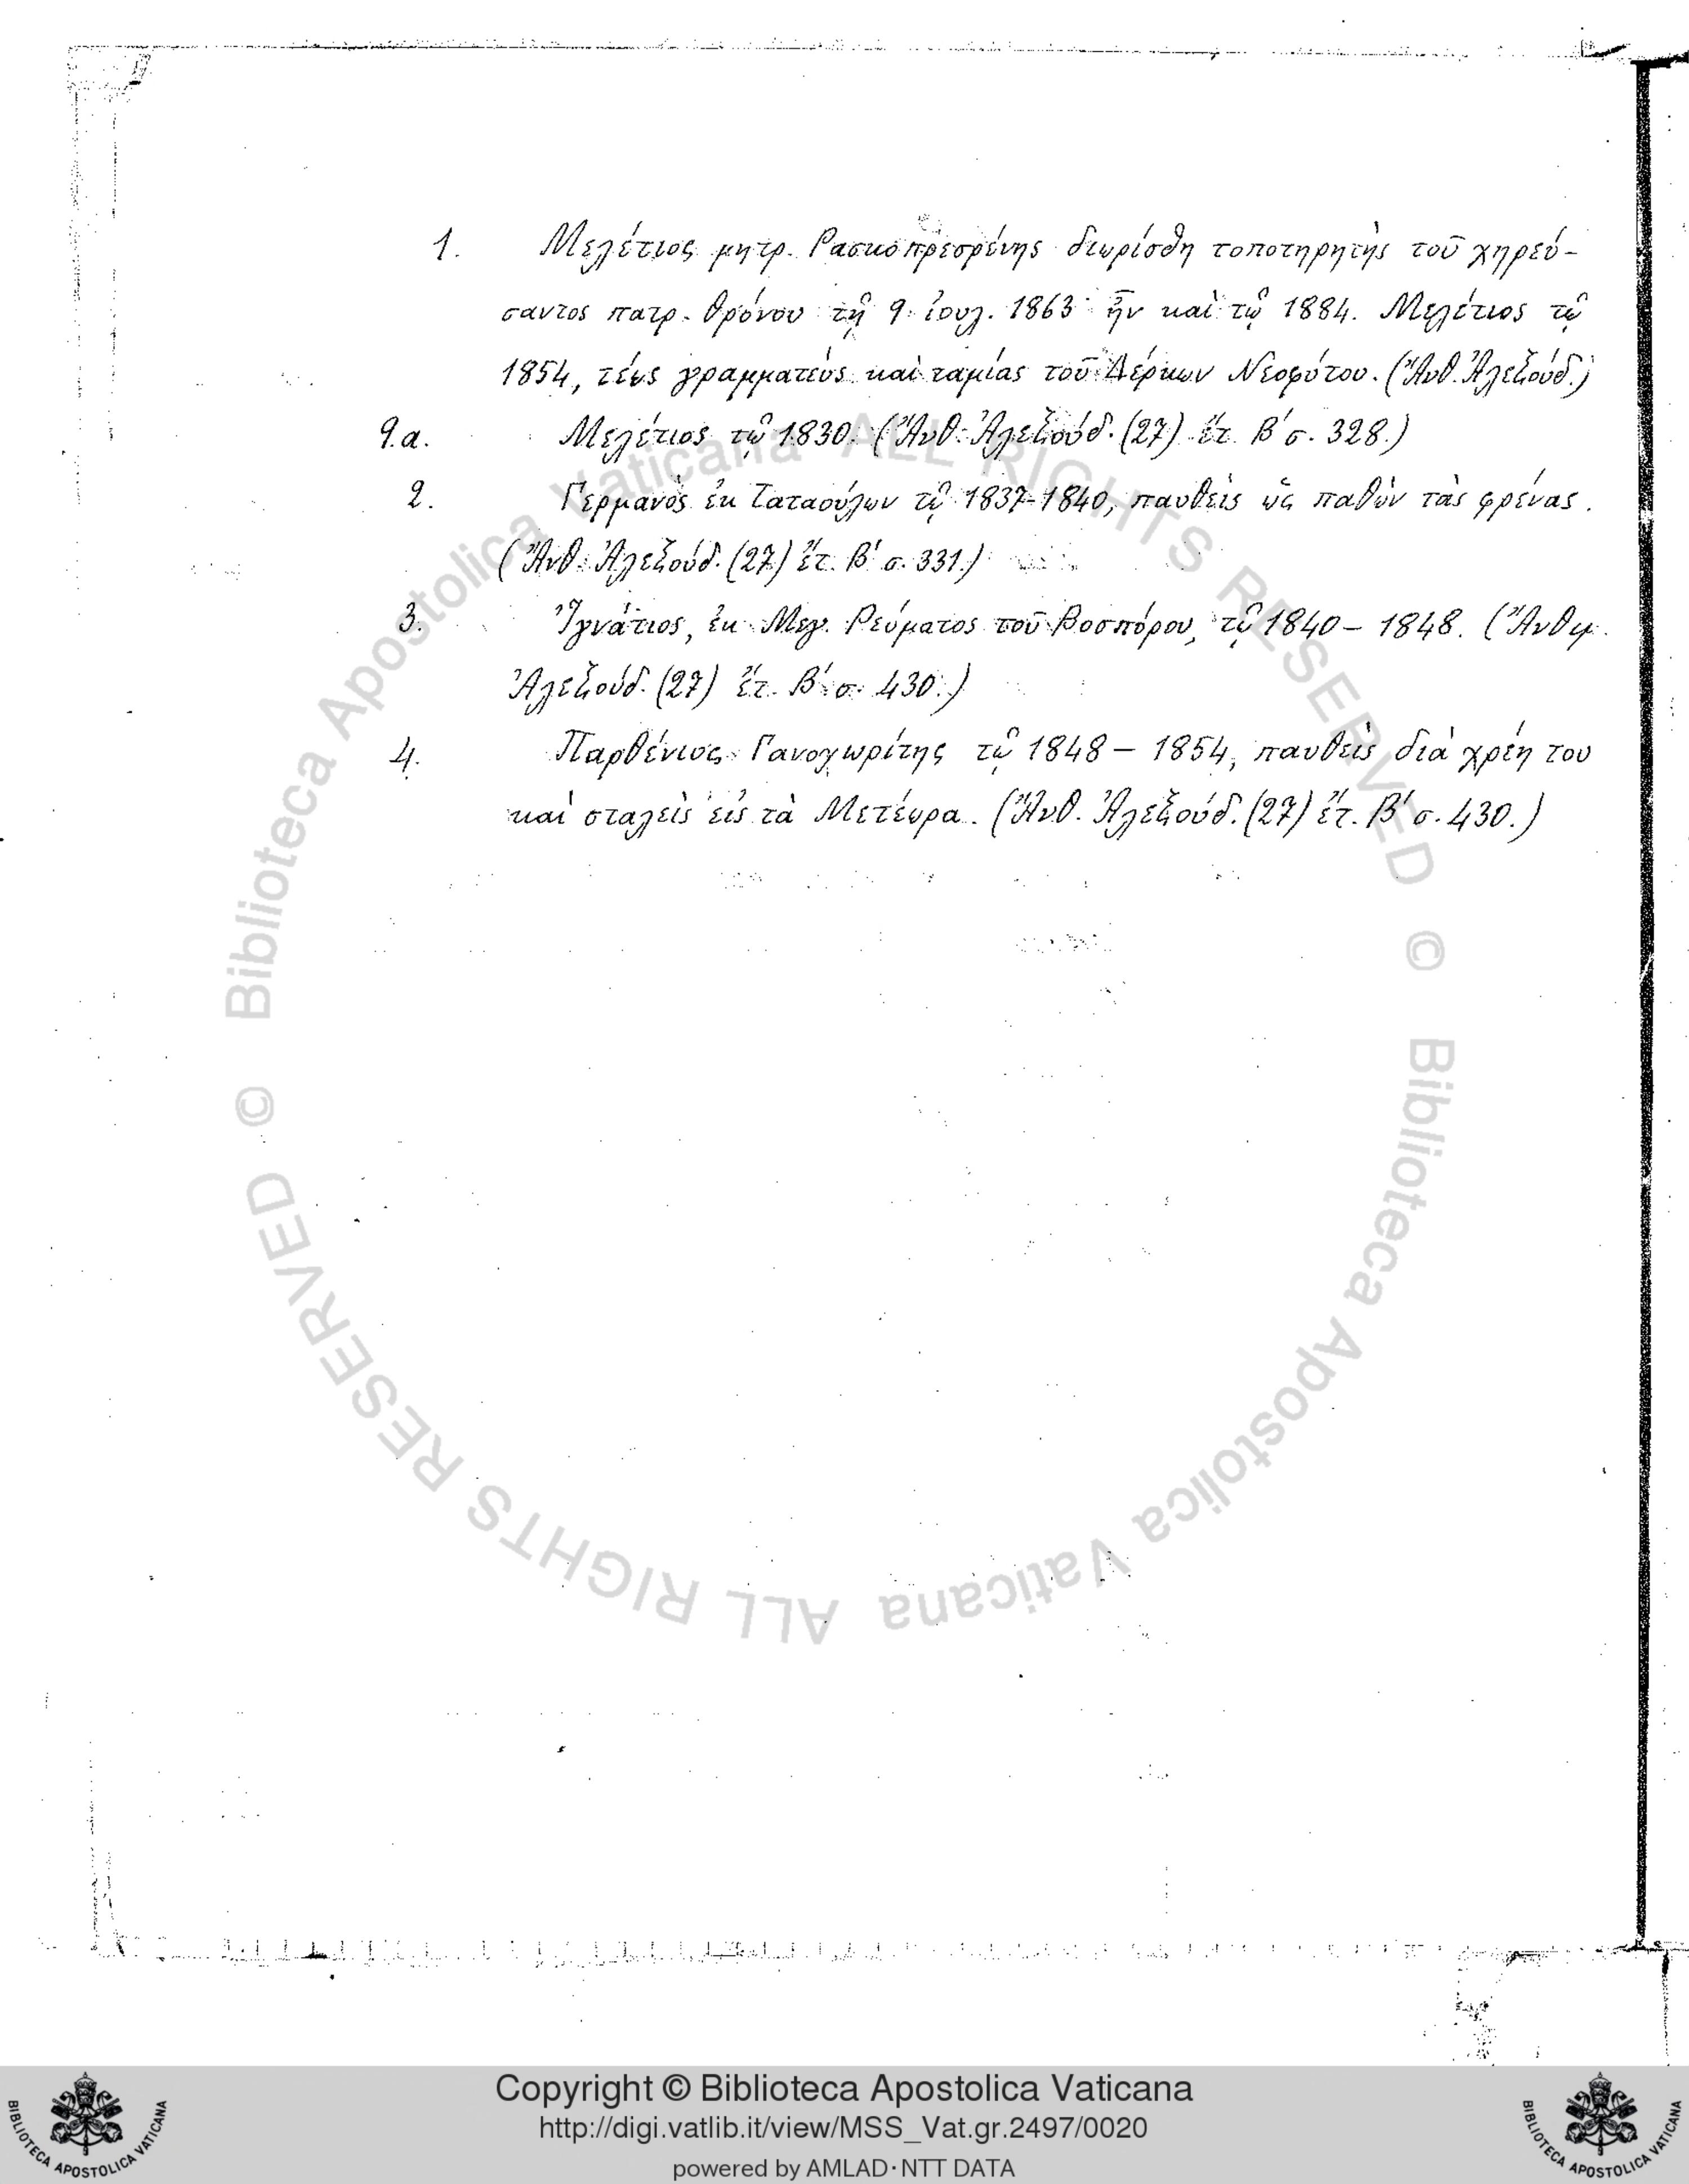 1. Μελέτιος μητρ. Ρασκοπρεσρένης διωρίσθη τοποτηρητὴς τοῦ χηρεύ-
σαντος πατρ. θρόνου τῇ 9 ἰουλ. 1863 ἦν καὶ τῷ 1884. Μελέτιος τῷ
1854, τέως γραμματεὺς καὶ ταμίας τοῦ Δέρκων Νεοφύτου. (Ἄνθ. Ἀλεξούδ.)
9.α. Μελέτιος τῷ 1830. (Ἄνθ. Ἀλεξούδ. (27) ἔτ. Β΄ σ. 328.)
2. Γερμανὸς ἐκ Ταταούλων τῷ 1837-1840, παυθεὶς ὡς παθὼν τὰς φρένας.
(Ἄνθ. Ἀλεξούδ. (27) ἔτ. Β΄ σ. 331.)
3. Ἰγνάτιος, ἐκ Μεγ. Ρεύματος τοῦ Βοσπόρου, τῷ 1840 – 1848. (Ἄνθιμ.
Ἀλεξούδ. (27) ἔτ. Β΄ σ. 430.)
4. Παρθένιος Γανοχωρίτης τῷ 1848 – 1854, παυθεὶς διὰ χρέη του
καὶ σταλεὶς εἰς τὰ Μετέωρα. (Ἄνθ. Ἀλεξούδ. (27) ἔτ. Β΄ σ. 430.)
© Biblioteca Apostolica Vaticana ALL RIGHTS RESERVED © Biblioteca Apostolica Vaticana ALL RIGHTS RESERVED
Copyright © Biblioteca Apostolica Vaticana
http://digi.vatlib.it/view/MSS_Vat.gr.2497/0020
powered by AMLAD·NTT DATA
BIBLIOTECA APOSTOLICA VATICANA
BIBLIOTECA APOSTOLICA VATICANA